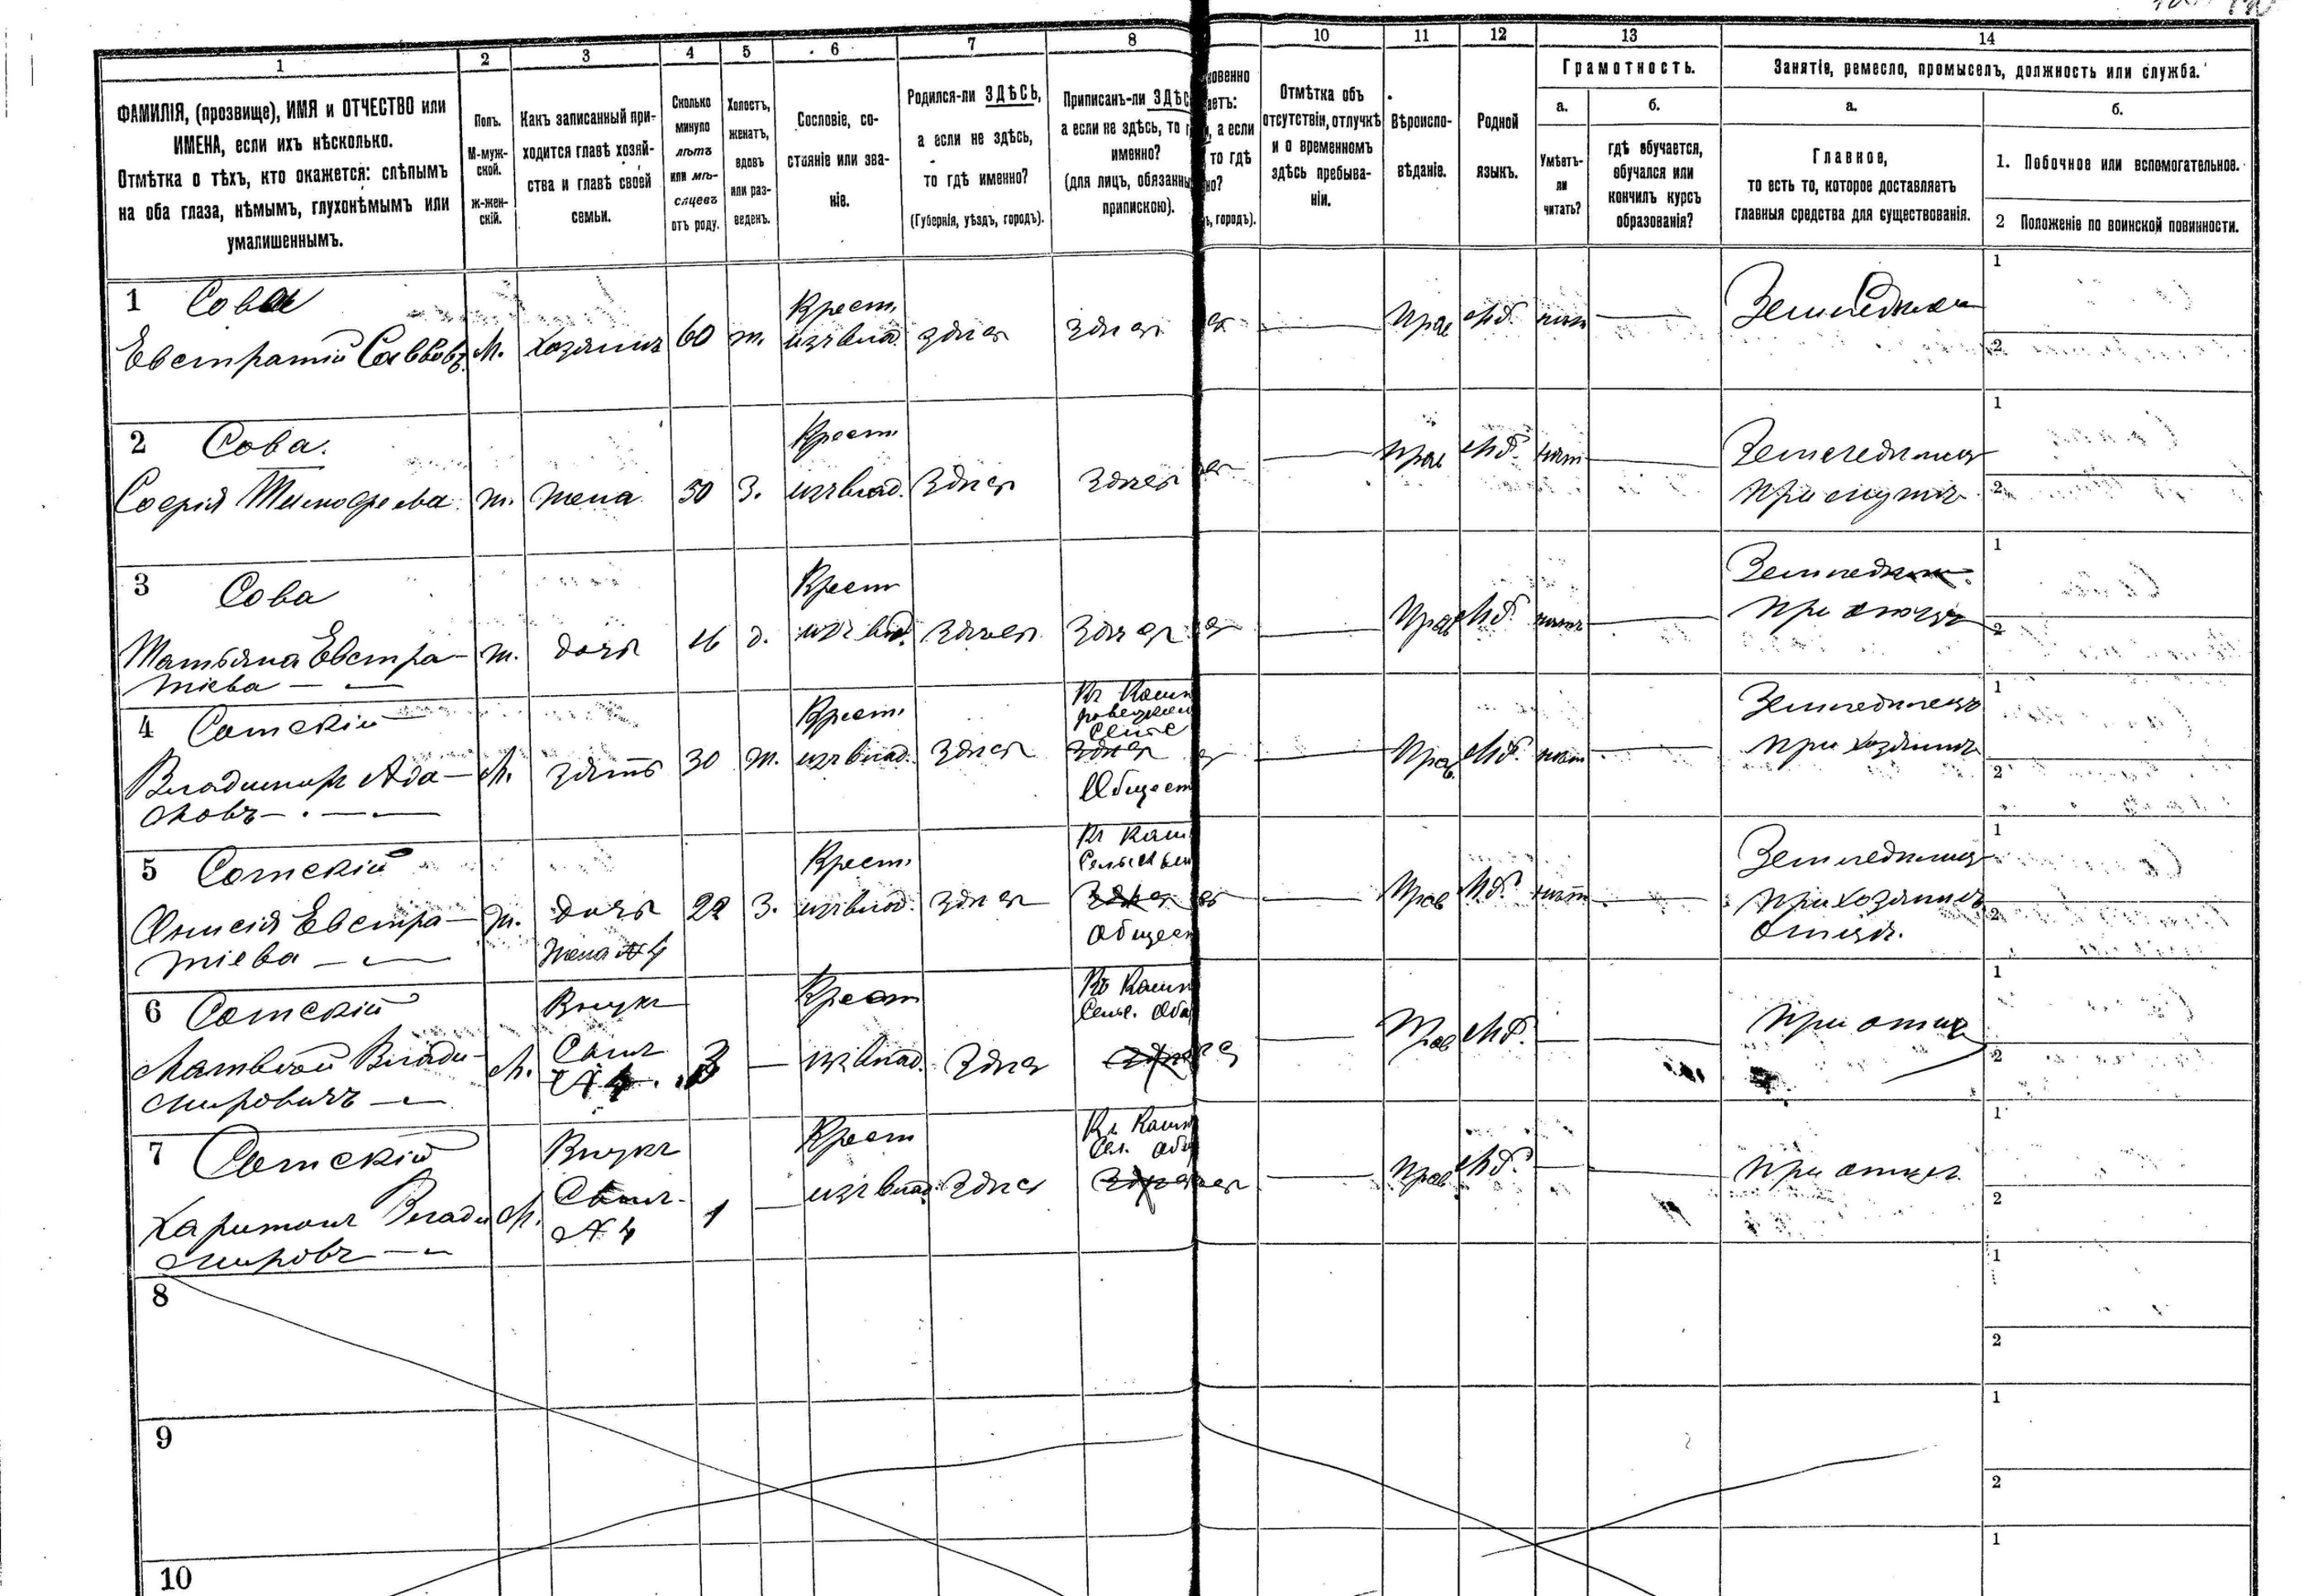 1
2
3
4
5
6
7
8
10
11
12
13
14
ФАМИЛІЯ, (прозвище), ИМЯ и ОТЧЕСТВО или
ИМЕНА, если ихъ нѣсколько.
Отмѣтка о тѣхъ, кто окажется: слѣпымъ
на оба глаза, нѣмымъ, глухонѣмымъ или
умалишеннымъ.
Полъ.
М-муж-
ской.
ж-жен-
скій.
Какъ записанный при-
ходится главѣ хозяй-
ства и главѣ своей
семьи.
Сколько
минуло
лѣтъ
или мѣ-
сяцевъ
отъ роду.
Холостъ,
женатъ,
вдовъ
или раз-
веденъ.
Сословіе, со-
стояніе или зва-
ніе.
Родился-ли ЗДѢСЬ,
а если не здѣсь,
то гдѣ именно?
(Губернія, уѣздъ, городъ).
Приписанъ-ли ЗДѢС
а если не здѣсь, то г
именно?
(для лицъ, обязанны
припискою).
новенно
аетъ:
, а если
то гдѣ
но?
ъ, городъ).
Отмѣтка объ
отсутствіи, отлучкѣ
и о временномъ
здѣсь пребыва-
ніи.
Вѣроиспо-
вѣданіе.
Родной
языкъ.
Грамотность.
а.
Умѣетъ-
ли
читать?
б.
гдѣ обучается,
обучался или
кончилъ курсъ
образованія?
Занятіе, ремесло, промыселъ, должность или служба.
а.
Главное,
то есть то, которое доставляетъ
главныя средства для существованія.
б.
1. Побочное или вспомогательное.
2 Положеніе по воинской повинности.
1 Сова
Евстратій Саввовъ М. хозяинъ 60 ж. Крест.
изъ влад. здѣсь здѣсь Прав Мд. нѣтъ 1
2
2 Сова.
Софія Тимофеева ж. жена 50 З. Крест.
изъ влад. Здѣсь Здѣсь Прав Мд. нѣтъ 1
при мужѣ 2
3 Сова
Татьяна Евстра-
тіева ж. дочь 16 д. Крест
изъ влад. Здѣсь Здѣсь Прав Мд нѣтъ 1
при отцѣ 2
4 Сотскій
Владимиръ Ада-
мовъ М. зять 30 ж. Крест.
изъ влад. Здѣсь Здѣсь
Общест
Прав Мд. нѣтъ 1
при хозяинѣ 2
5 Сотскій
Анисія Евстра-
тіева ж. дочь
жена №4 22 З. Крест.
изъ влад. Здѣсь Здѣсь
общест
Прав Мд. нѣтъ 1
при хозяинѣ 2
отцѣ.
6 Сотскій
Матвѣй Влади-
мировичъ М. Внукъ
Сынъ
№ 4. 3 Крест
изъ влад. Здѣсь Прав Мд. при отцѣ 1
2
7 Сотскій
Харитонъ Влади
мировъ М. Внукъ
Сынъ
№ 4 1 Крест
изъ влад. Здѣсь Прав Мд. при отцѣ 1
2
8
1
2
9
1
2
10
1